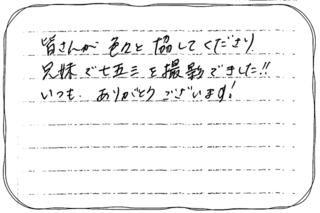 皆さんが色々と協してくださり
兄妹で七五三を撮影できました!!
いつも ありがとうございます!